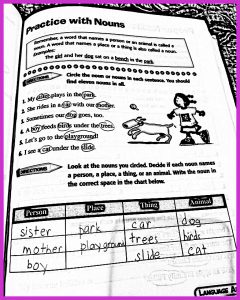 Practice with Nouns
Remember, A word that names a person or an animal is called a
noun. A word that names a place or a thing is also called a noun.
Examples:
The girl and her dog sat on a bench in the park.
DIRECTIONS
Circle the noun or nouns in each sentence. You should
find eleven nouns in all.
1. My sister plays in the park.
2. She rides in a car with our mother.
3. Sometimes our dog goes, too.
4. A boy feeds birds under the trees.
5. Let's go to the playground!
6. I see a cat under the slide.
DIRECTIONS
Look at the nouns you circled. Decide if each noun names
a person, a place, a thing, or an animal. Write the noun in
the correct space in the chart below.
Person Place Thing Animal
sister park car dog
mother playground trees birds
boy slide cat
Language